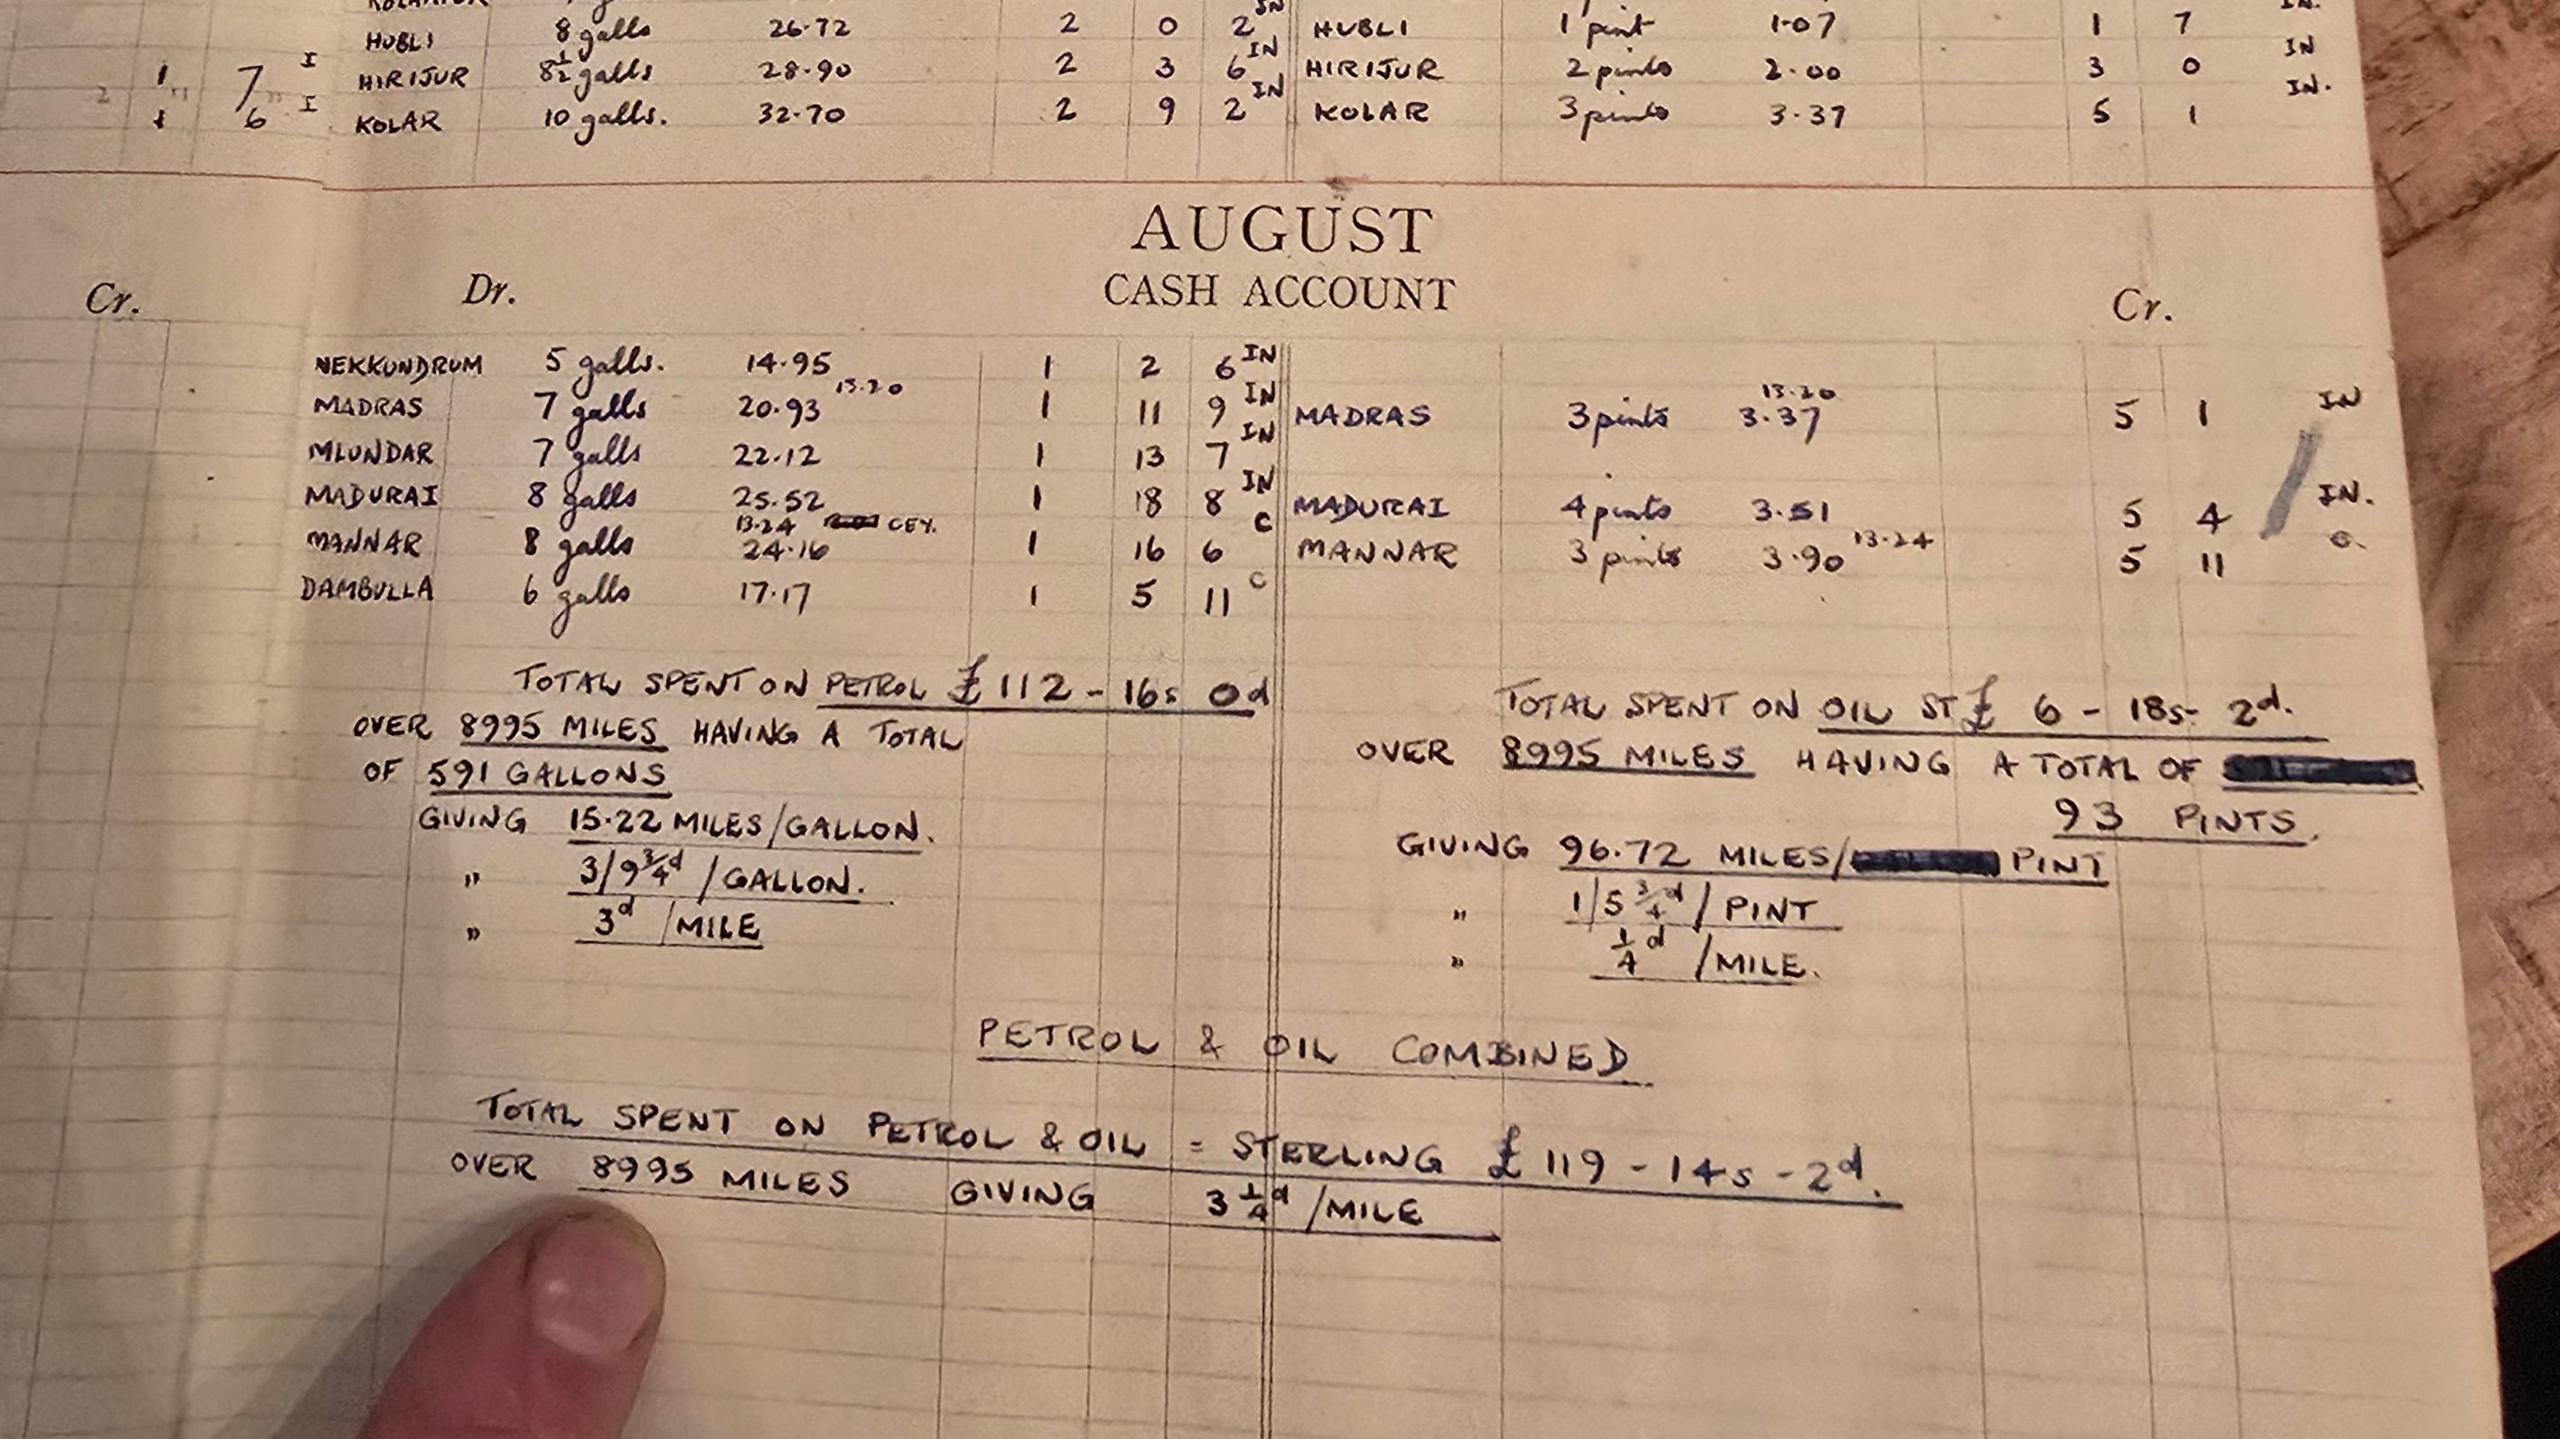 HUBLI 8 galls 26.72 2 0 2 IN HUBLI 1 pint 1.07 1 7 IN.
1 7 I HIRIJUR 8½ galls 28.90 2 3 6 IN HIRIJUR 2 pints 2.00 3 0 IN
1 6 I KOLAR 10 galls. 32.70 2 9 2 IN KOLAR 3 pints 3.37 5 1 IN.
AUGUST
CASH ACCOUNT
Cr. Dr. Cr.
NEKKUNDRUM 5 galls. 14.95 1 2 6 IN
MADRAS 7 galls 20.93 13.20 1 11 9 IN MADRAS 3 pints 13.20 3.37 5 1 IN
MLUNDAR 7 galls 22.12 1 13 7 IN
MADURAI 8 galls 25.52 1 18 8 IN MADURAI 4 pints 3.51 5 4 IN.
MANNAR 8 galls 13.24 CEY. 24.16 1 16 6 C MANNAR 3 pints 3.90 13.24 5 11 C.
DAMBULLA 6 galls 17.17 1 5 11 C
TOTAL SPENT ON PETROL £112 - 16s 0d
OVER 8995 MILES HAVING A TOTAL
OF 591 GALLONS
GIVING 15.22 MILES/GALLON.
" 3/9¾d /GALLON.
" 3d /MILE
TOTAL SPENT ON OIL ST £ 6 - 18s - 2d.
OVER 8995 MILES HAVING A TOTAL OF
93 PINTS.
GIVING 96.72 MILES/ PINT
" 1/5¾d / PINT
" ¼d /MILE.
PETROL & OIL COMBINED
TOTAL SPENT ON PETROL & OIL = STERLING £119 - 14s - 2d.
OVER 8995 MILES GIVING 3¼d /MILE